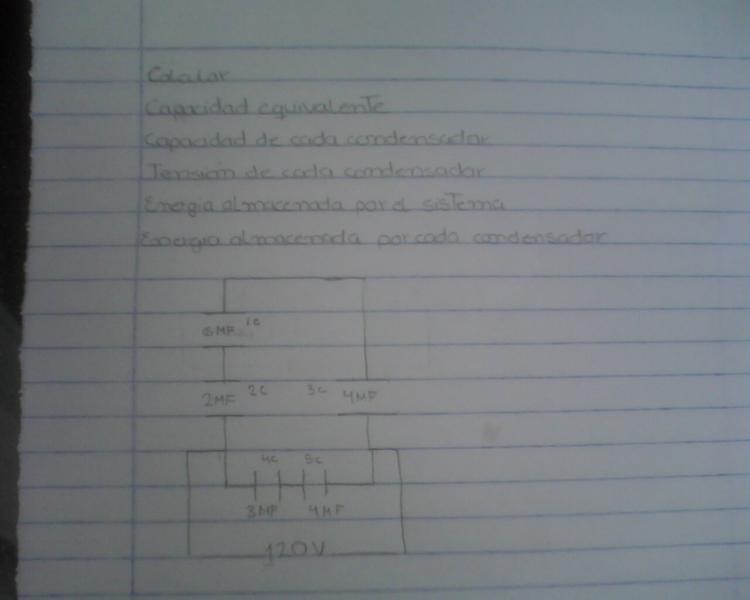 Calcular
Capacidad equivalente
Capacidad de cada condensador
Tensión de cada condensador
Energia almacenada por el sistema
Energia almacenada por cada condensador
6MF 1c
2MF 2c 3c 4MF
4c 5c
3MF 4MF
120V